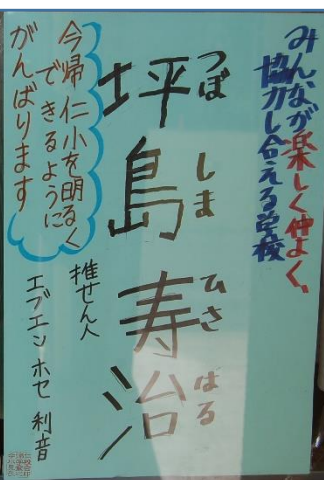 みんなが楽しく仲よく、
協力し合える学校
つぼ しま ひさ はる
坪島 寿治
今帰仁小を明るく
できるように
がんばります
推せん人
エブエン ホセ 利音